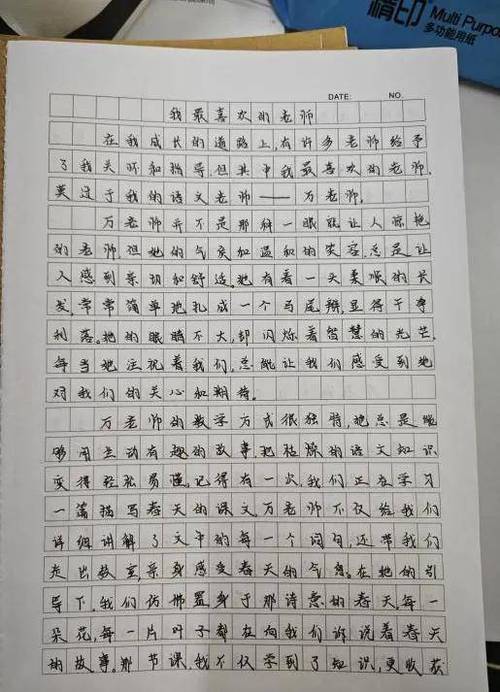 精印
Multi Purpo
多功能用纸
DATE: NO.
我最喜欢的老师
在我成长的道路上,有许多老师给予
了我关怀和指导但其中我最喜欢的老师,
莫过于我的语文老师——万老师。
万老师并不是那种一眼就让人惊艳
的老师,但她的气质和温和的笑容,总是让
人感到亲切和舒适。她有着一头柔顺的长
发,常常简单地扎成一个马尾辫,显得干净
利落。她的眼睛不大,却闪烁着智慧的光芒,
每当她注视着我们,总能让我们感受到她
对我们的关心和期待。
万老师的教学方式很独特,她总是能
够用生动有趣的故事,把枯燥的语文知识
变得轻松易懂,记得有一次,我们正在学习
一篇描写春天的课文,万老师不仅给我们
详细讲解了文中的每一个词句,还带我们
走出教室亲身感受春天的气息。在她的引
导下,我们仿佛置身于那诗意的春天每一
朵花,每一片叶子都在向我们诉说着春天
的故事。那节课,我不仅学到了知识,更收获